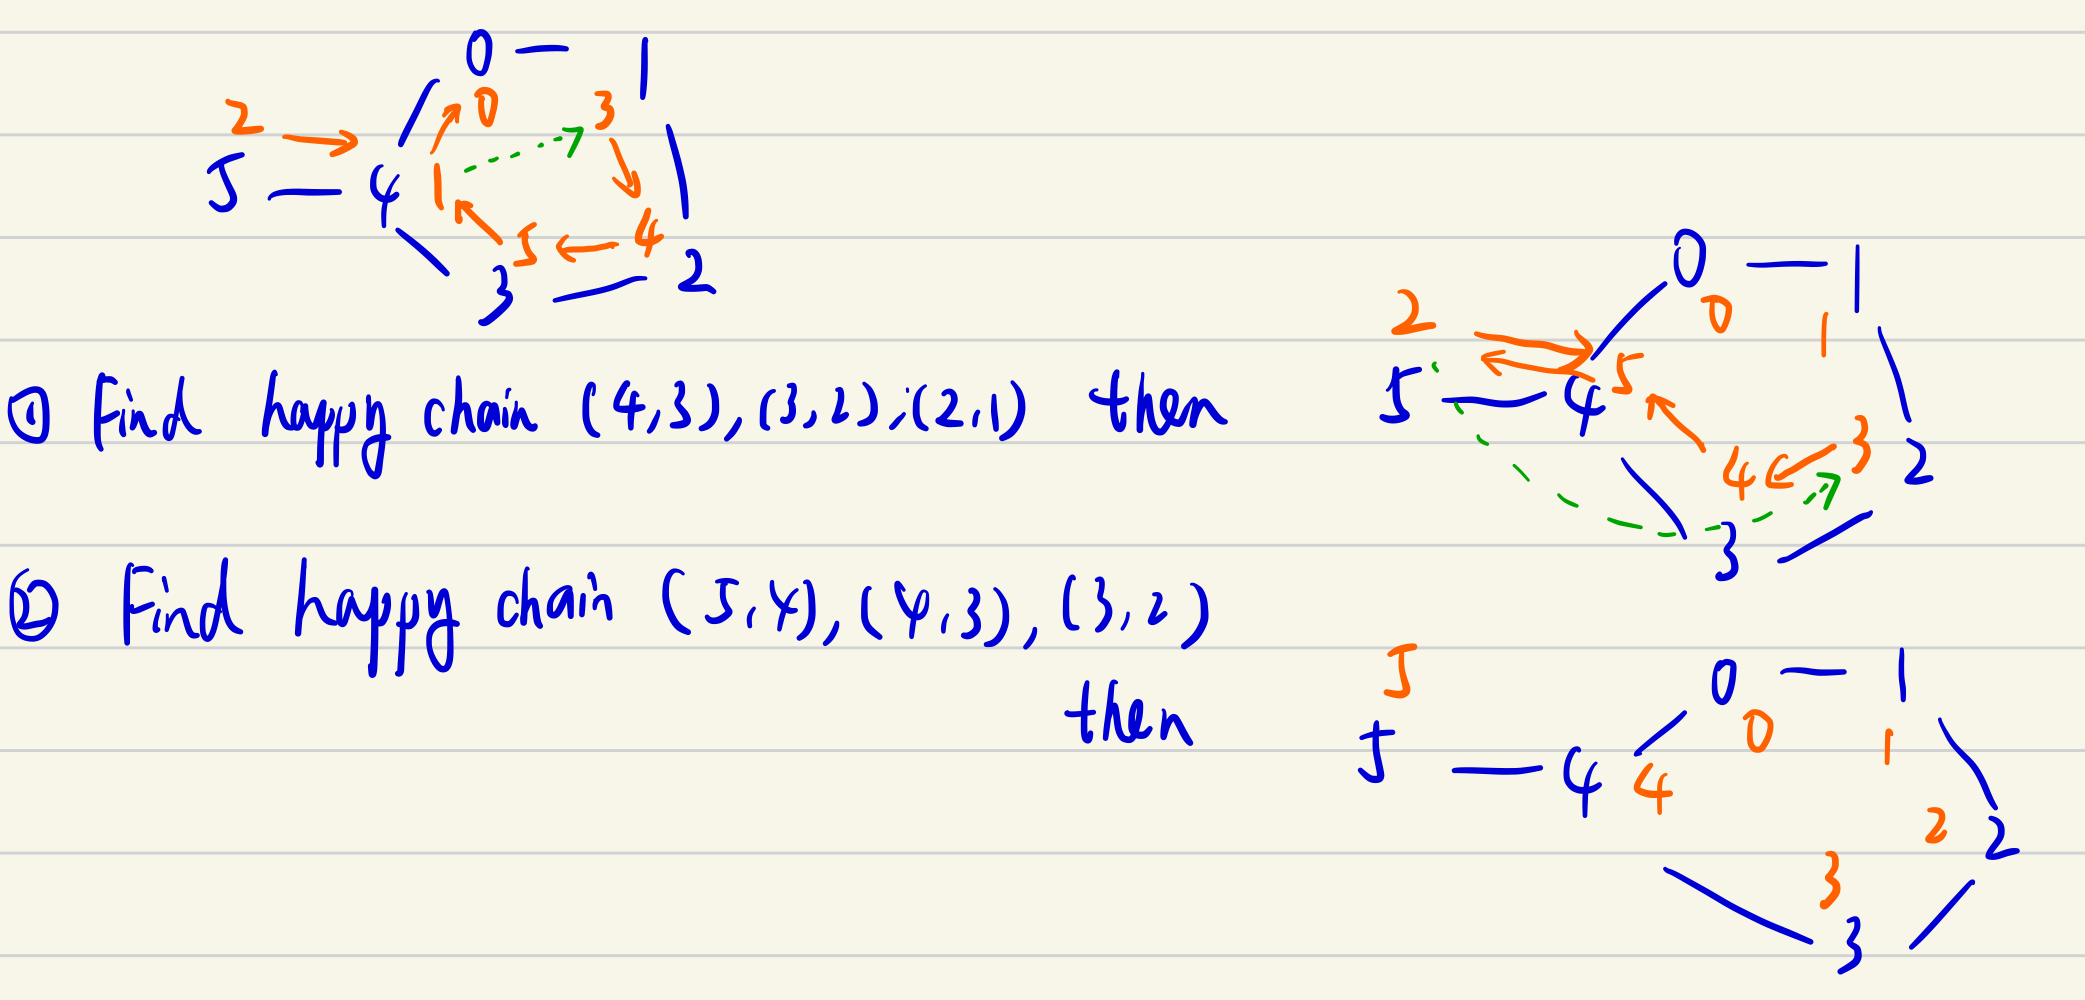 0 — 1
2 0 3
5 — 4 1
5 4
3 2
0 — 1
2 0 1
① Find happy chain (4,3), (3,2), (2,1) then
5 — 4 5
4 3 2
3
② Find happy chain (5,4), (4,3), (3,2)
then
5 0 — 1
0 1
5 — 4 4
2 2
3
3